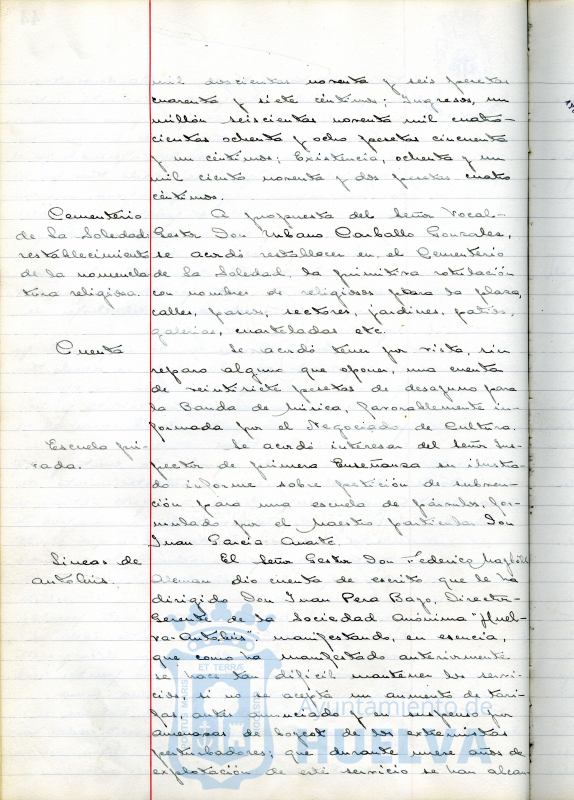 mil doscientas noventa y seis pesetas
cuarenta y siete céntimos; Ingresos, un
millón seiscientas noventa mil cuatro-
cientas ochenta y ocho pesetas cincuenta
y un céntimos; Existencia, ochenta y un
mil ciento noventa y dos pesetas cuatro
céntimos.
Cementerio
de la Soledad:
restablecimiento
de la nomencla
tura religiosa.
A propuesta del Señor Vocal-
Gestor Don Urbano Carballo González,
se acordó restablecer en el Cementerio
de la Soledad, la primitiva rotulación
con nombres de religiosos para la plaza,
calles, paseos, sectores, jardines, patios,
galerías, cuarteladas etc.
Cuenta
Se acordó tener por vista, sin
reparo alguno que oponer, una cuenta
de veintisiete pesetas de desayuno para
la Banda de Música, favorablemente in-
formada por el Negociado de Cultura.
Escuela pri-
vada.
Se acordó interesar del Señor Ins-
pector de primera Enseñanza su ilustra-
do informe sobre petición de subven-
ción para una escuela de párvulos, for-
mulado por el Maestro particular Don
Juan García
Lineas de
autobus.
El Señor Gestor Don Federico
Aleman dio cuenta de escrito que le ha
dirigido Don Juan Pera Bazo, Director-
Gerente de la Sociedad Anónima "Huel-
va-Autobús", manifestando, en esencia,
que como ha manifestado anteriormente
se hace tan difícil mantener los servi-
cios si no se acepta un aumento de tari-
fas, antes anunciado y en suspenso por
amenazas de boycot de los extremistas
perturbadores; que durante nueve años de
explotación de este servicio se han alcan-
Ayuntamiento de
HUELVA